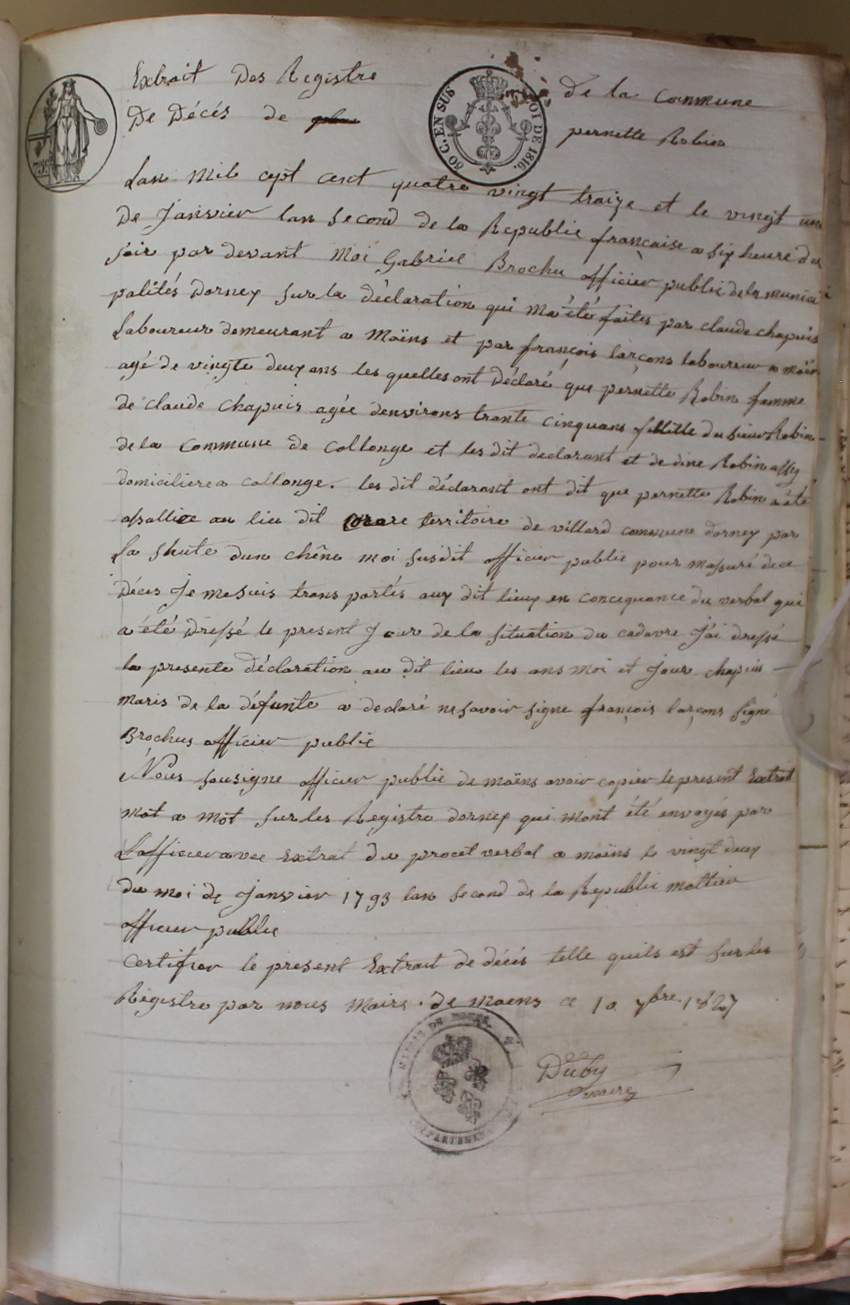 Extrait Des Registre de la Commune
De Décés de pernette Robin
50 C. EN SUS
LOI DE 1816.
Lan mil cept cent quatre vingt traize et le vingt un
De Janvier lan second de la Republic française a six heure du
soir par devant Moi Gabriel Brochu officier public de la munici
palités Dorney sur la déclaration qui ma été faites par claude chapuis
Laboureur demeurant a Moëns et par françois larçons laboureur a moën
agé de vingte deux ans les quelles ont déclaré que pernette Robin famme
de claude chapuis agée denvirons trante cinquans fillille du sieur Robin
de la Commune de Collonge et les dit declarant et de dine Robin assy
domicilierea collonge. les dit déclarant ont dit que pernette Robin a été
assallie au lieu dit territoire de villard commune dorney par
La shute dun chêne moi susdit officier public pour massuré de ce
Déces je me suis trans portés aux dit lieux en concequance du verbal qui
a été Dressé le present Jour de la situation du cadavre J'ai dressé
la presente déclaration au dit lieu les ans moi et jour chapuis
maris de la défunte a declaré ne savoir signe françois larçons signé
Brochus officier public
Nous sousigne officier public de moëns avoir copier le present Extrat
mot a mot sur les Registre dorney qui mont été envoyés par
L'officier avec Extrat du procet verbal a moëns le vingt deux
du moi de janvier 1793 lan second de la Republic mottier
officier public
Certifier le present Extrait de décés telle quils est sur les
Régistre par nous Maire de Moens ce 10 7bre 1827
MAIRIE DE
DEPARTEMENT
Duby
maire